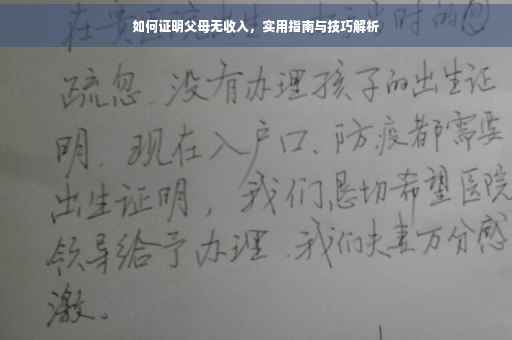 如何证明父母无收入，实用指南与技巧解析
时的
疏忽、没有办理孩子的出生证
明、现在入户口、防疫都需要
出生证明，我们恳切希望医院
领导给予办理、我们夫妻万分感
激。